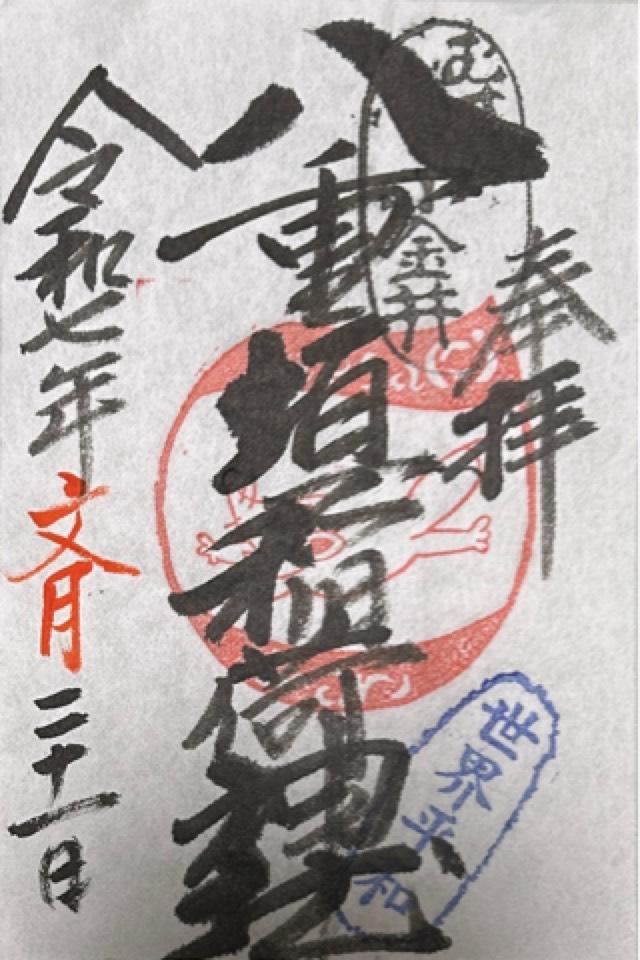 奉拝
小金井
八重垣稲荷神社
令和七年
文月
二十一日
世界平和